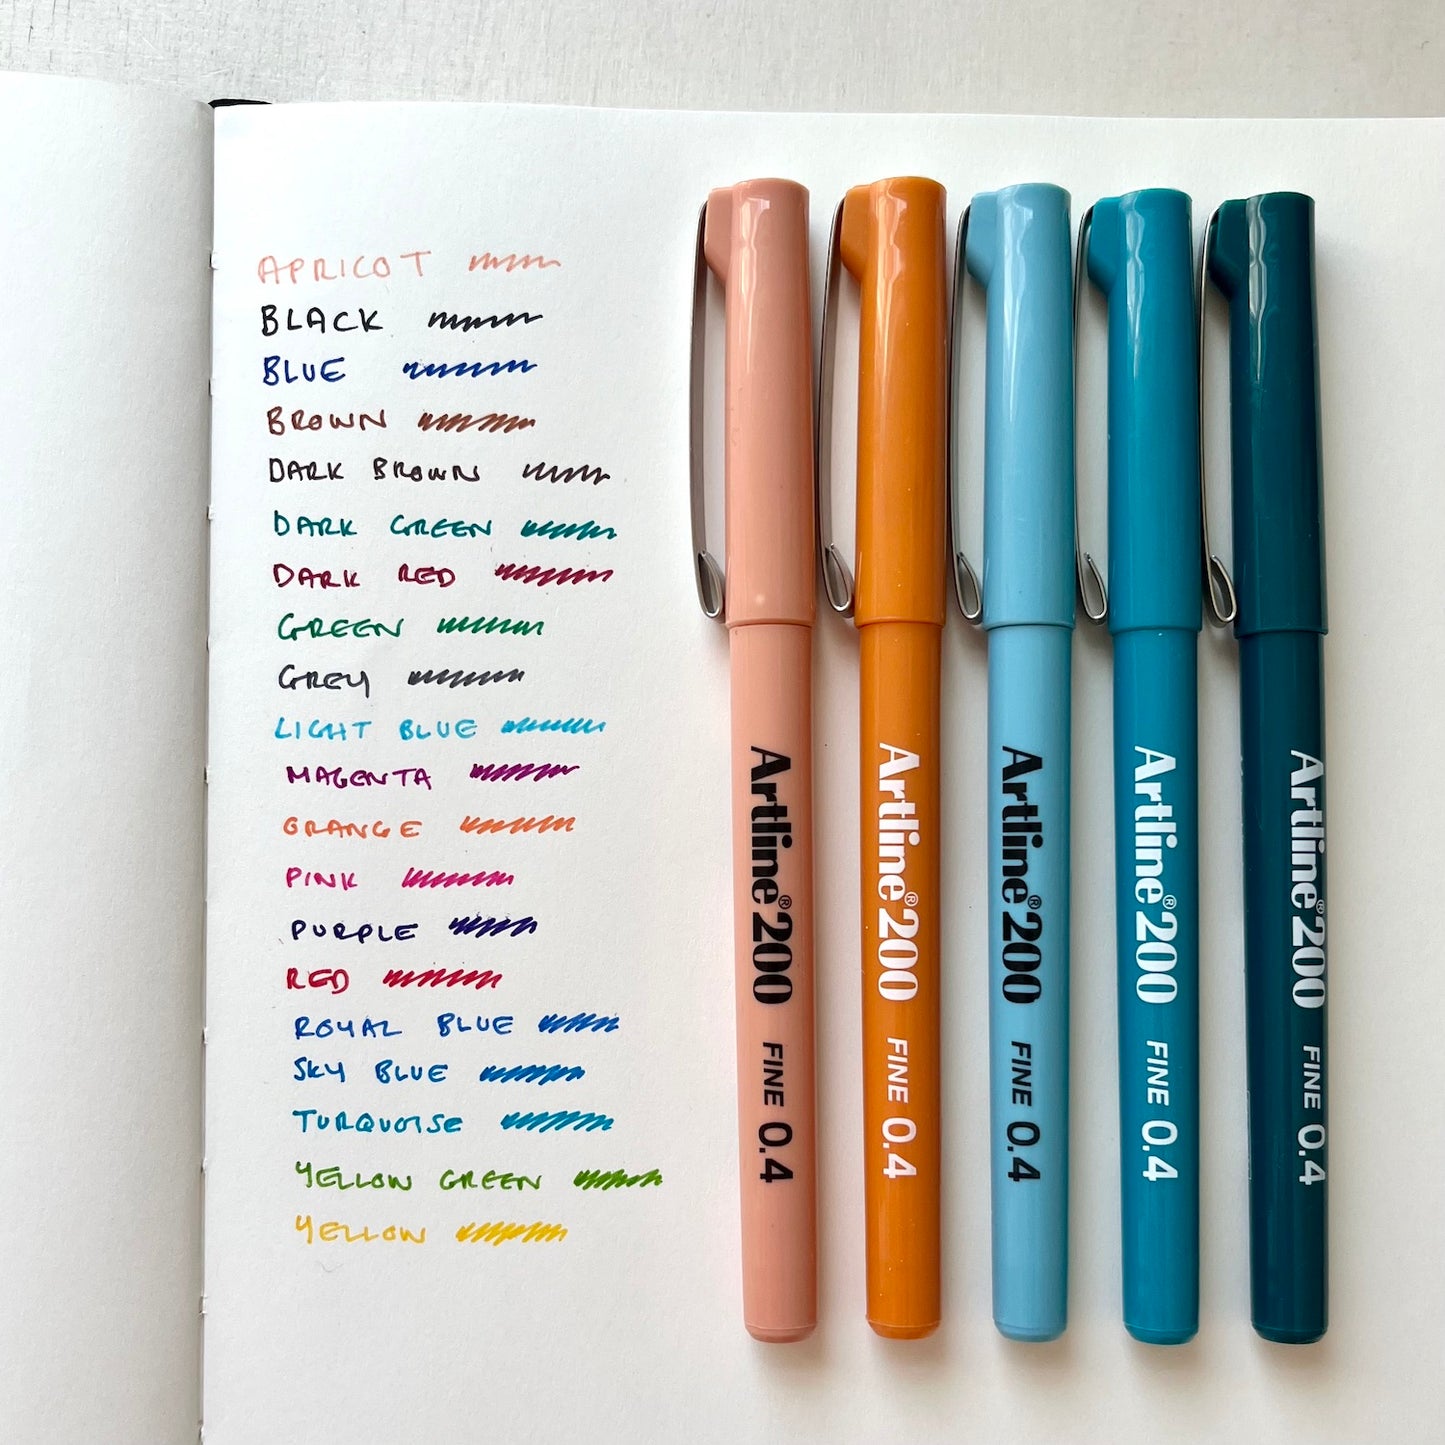 APRICOT
BLACK
BLUE
BROWN
DARK BROWN
DARK GREEN
DARK RED
GREEN
GREY
LIGHT BLUE
MAGENTA
ORANGE
PINK
PURPLE
RED
ROYAL BLUE
SKY BLUE
TURQUOISE
YELLOW GREEN
YELLOW
Artline®200 FINE 0.4
Artline®200 FINE 0.4
Artline®200 FINE 0.4
Artline®200 FINE 0.4
Artline®200 FINE 0.4